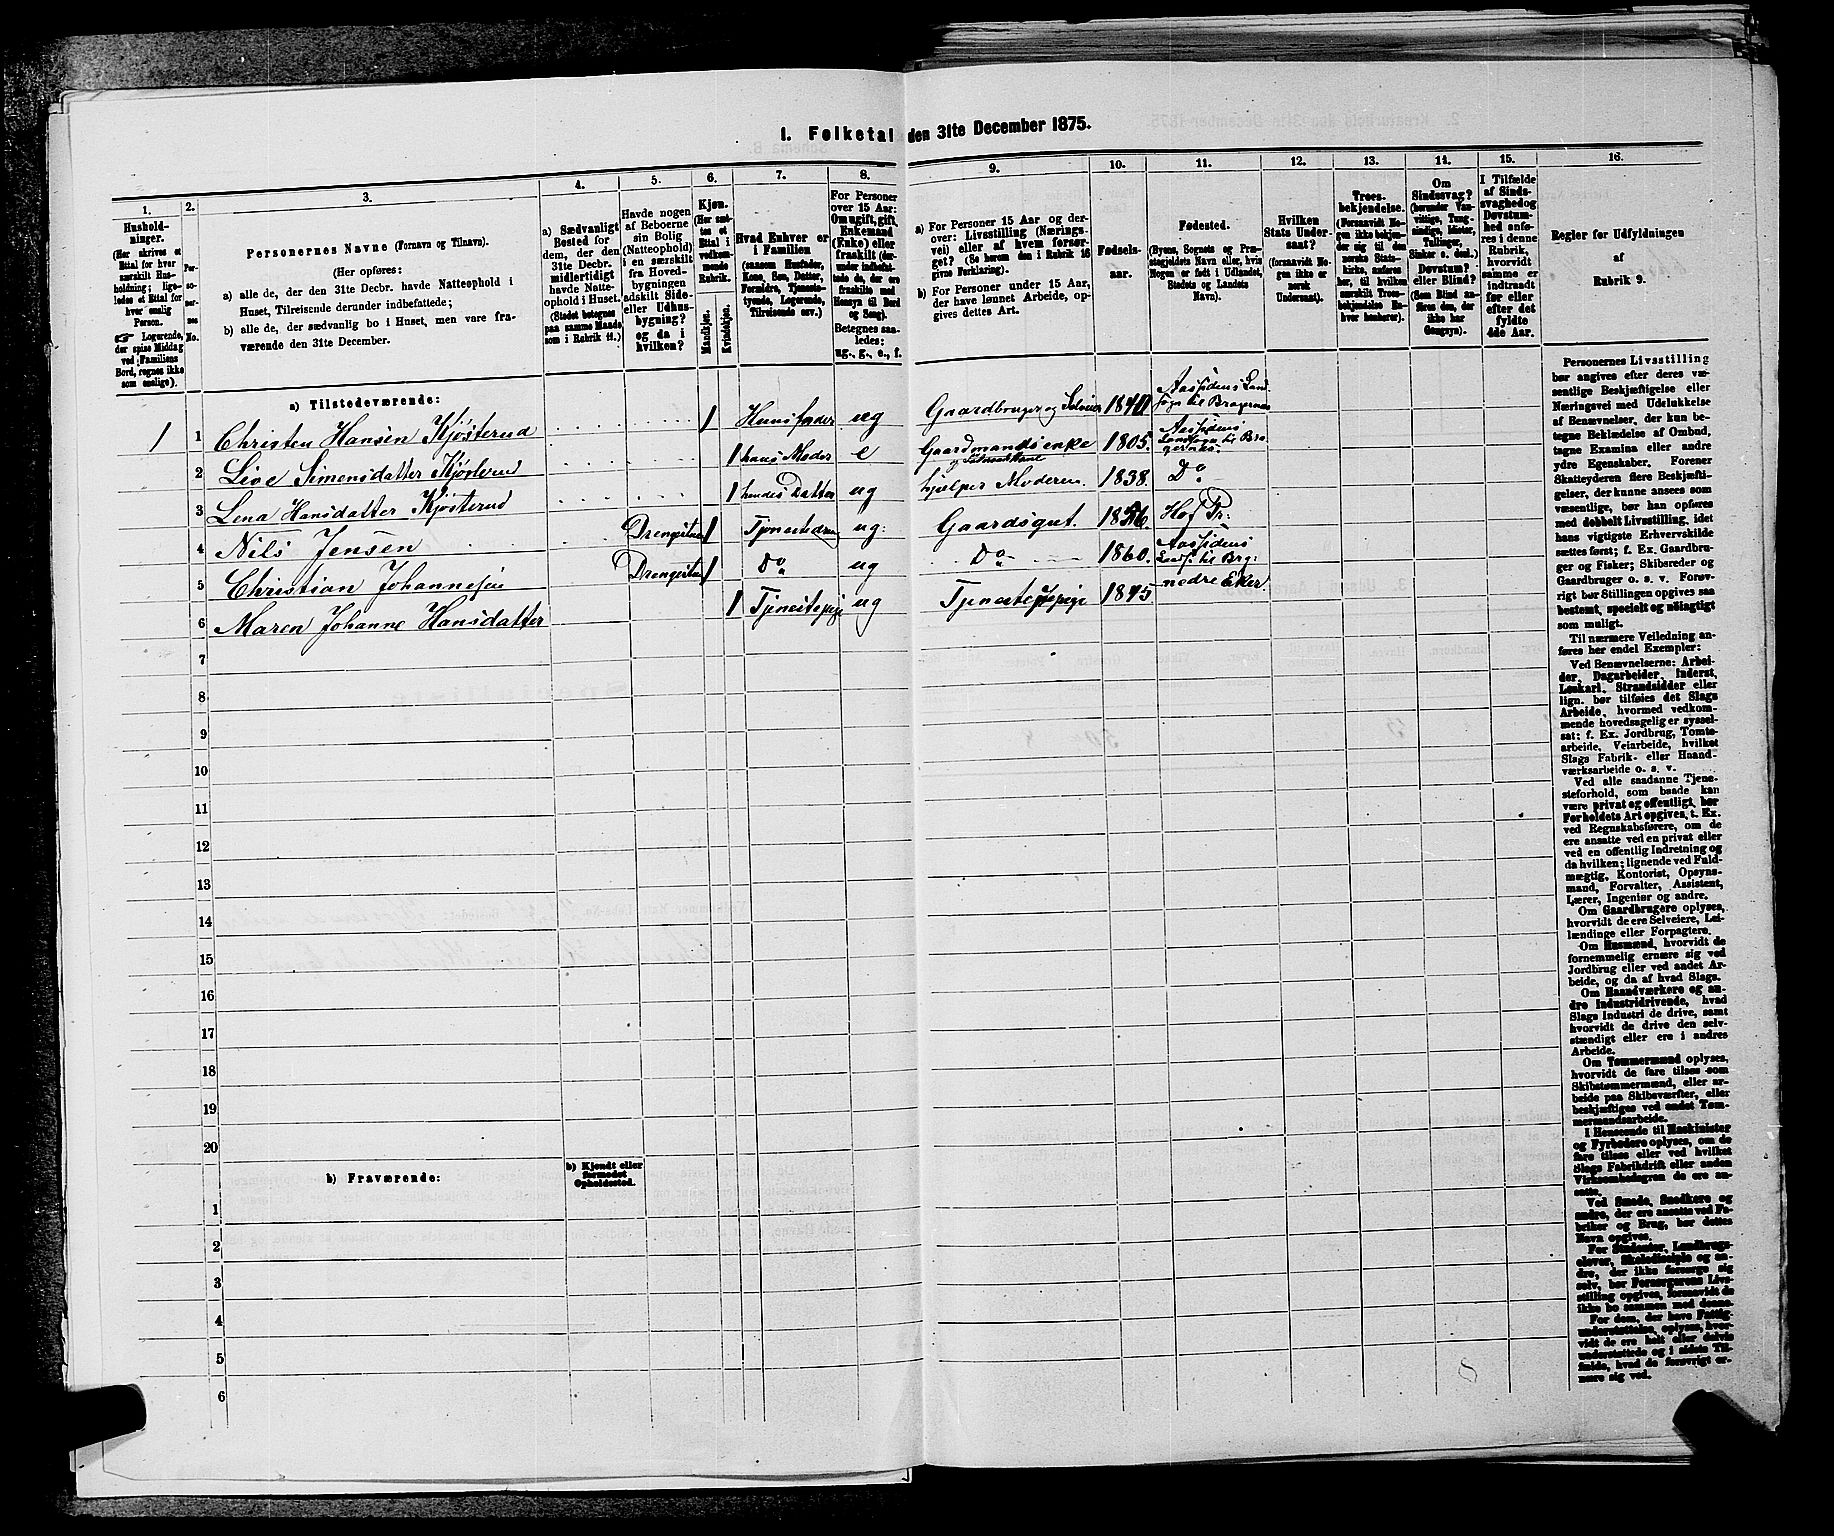 1. Folketal den 31te December 1875.
1.
2.
3.
4.
5.
6.
7.
8.
9.
10.
11.
12.
13.
14.
15.
16.
Hushold-
ninger.
(Her skrives et
Ettal for hver
særskilt Hus-
holdning; lige-
ledes et Ettal for
hver enslig
Person.
☞ Logerende,
der spise Middag
ved Familiens
Bord, regnes ikke
som enslige).
Per-
so-
ner-
nes
No.
Personernes Navne (Fornavn og Tilnavn).
(Her opføres:
a) alle de, der den 31te Decbr. havde Natteophold i
Huset, Tilreisende derunder indbefattede;
b) alle de, der sædvanlig bo i Huset, men vare fra-
værende den 31te December.
a) Sædvanligt
Bosted for
dem, der den
31te Decbr.
midlertidigt
havde Natte-
ophold i Huset.
(Stedet betegnes
paa samme Maade
som i Rubrik 11.)
Havde nogen
af Beboerne
sin Bolig
(Natteophold)
i en særskilt
fra Hoved-
bygningen
adskilt Side-
eller Udhus-
bygning?
og da i
hvilken?
Kjøn.
(Her sæt-
tes et
Ettal i
vedkom-
mende
Rubrik.
Mandkjøn.
Kvindekjøn.
Hvad Enhver er
i Familien
(saasom Husfader,
Kone, Søn, Datter,
Forældre, Tjeneste-
tyende, Logerende,
Tilreisende osv.)
For Personer
over 15 Aar:
Om ugift, gift,
Enkemand
(Enke) eller
fraskilt
(der-
under indbefat-
tede de, der ere
fraskilte med
Hensyn til Bord
og Seng).
Betegnes saa-
ledes:
ug., g., e., f.
a) For Personer 15 Aar og der-
over: Livsstilling (Nærings-
vei) eller af hvem forsør-
get? (Se herom den i Rubrik 16
givne Forklaring).
b) For Personer under 15 Aar,
der have lønnet Arbeide, op-
gives dettes Art.
Fødsels-
aar.
Fødested.
(Byens, Sognets og Præ-
stegjeldets Navn eller, hvis
Nogen er født i Udlandet,
Stedets og Landets
Navn).
Hvilken
Stats Under-
saat?
(forsaavidt No-
gen ikke er
norsk
Undersaat).
Troes-
bekjendelse.
(Forsaavidt No-
gen ikke bekjen-
der sig til den
norske Stats-
kirke, anføres
her, til hvilken
særskilt Troes-
bekjendelse En-
hver henhører).
Om
Sindssvag?
(herunder Van-
vittige, Tung-
sindige, Idioter,
Tullinger,
Sinker o. desl.)
Døvstum?
eller Blind?
(Som Blind an-
føres den, der
ikke har
Gangsyn).
I Tilfælde
af Sinds-
svaghed og
Døvstum-
hed anfø-
res i denne
Rubrik,
hvorvidt
samme er
indtraadt
før eller
efter det
fyldte
4de Aar.
Regler for Udfyldningen
af
Rubrik 9.
a) Tilstedeværende:
1 1 Christen Hansen Kjøsterud 1 Huusfader ug Gaardbruger og Selveier 1840 Aassidens Land-
sogn til Bragernes
2 Live Simensdatter Kjøsterud 1 hans Moder e Gaardmandsenke 1805. Aassidens
Landsogn til Bra-
gernes.
3 Lena Hansdatter Kjøsterud 1 hendes Datter ug hjelper Moderen. 1838. Do
4 Nils Jensen Drengestuen 1 Tjenestedreng ug. Gaardsgut. 1856. Hof Pr.
5 Christian Johannesen Drengestuen 1 Do ug Do 1860. Aassidens
Lands. til Brg.
6 Maren Johanne Hansdatter 1 Tjenestepige ug Tjenestepige 1845 nedre Eker
7
8
9
10
11
12
13
14
15
16
17
18
19
20
b) Fraværende:
b) Kjendt eller
formodet
Opholdssted.
1
2
3
4
5
6
Personernes Livsstilling
bør angives efter deres væ-
sentlige Beskjæftigelse eller
Næringsvei med Udelukkelse
af Benævnelser, der kun be-
tegne Beklædelse af Ombud,
tagne Examina eller andre
ydre Egenskaber. Forener
Skatteyderen flere Beskjæfti-
gelser, der kunne ansees som
væsentlige, bør han opføres
med dobbelt Livsstilling, idet
hans vigtigste Erhvervskilde
sættes først; f. Ex. Gaardbru-
ger og Fisker; Skibsreder og
Gaardbruger o. s. v. Forøv-
rigt bør Stillingen opgives saa
bestemt, specielt og nøiagtigt
som muligt.
Til nærmere Veiledning an-
føres her endel Exempler:
Ved Benævnelserne: Arbei-
der, Dagarbeider, Inderst,
Løskarl, Strandsidder eller
lign. bør tilføies det Slags
Arbeide, hvormed vedkom-
mende hovedsagelig er syssel-
sat; f. Ex. Jordbrug, Tomte-
arbeide, Veiarbeide, hvilket
Slags Fabrik- eller Haand-
værksarbeide o. s. v.
Ved alle saadanne Tjene-
steforhold, som baade kan
være privat og offentligt, bør
Forholdets Art opgives, t. Ex.
ved Regnskabsførere, om de
ere ansatte ved en privat eller
ved en offentlig Indretning og
da hvilken; lignende ved Fuld-
mægtig, Kontorist, Opsyns-
mand, Forvalter, Assistent,
Lærer, Ingeniør og andre.
Om Gaardbrugere oplyses,
hvorvidt de ere Selveiere, Lei-
lændinge eller Forpagtere.
Om Husmænd, hvorvidt de
fornemmelig ernære sig ved
Jordbrug eller ved andet Ar-
beide, og da af hvad Slags.
Om Haandværkere og an-
dre Industridrivende, hvad
Slags Industri de drive, samt
hvorvidt de drive den selv-
stændigt eller ere i andres
Arbeide.
Om Tømmermænd oplyses,
hvorvidt de fare tilsøs som
Skibstømmermænd, eller ar-
beide paa Skibsværfter, eller
beskjæftiges ved andet Tøm-
mermandsarbeide.
I Henseende til Maskinister
og Fyrbødere oplyses, om de
fare tilsøs eller ved hvilket
Slags Fabrikdrift eller anden
Virksomhedsgren de ere an-
satte.
Ved Smede, Snedkere og
andre, der ere ansatte ved Fa-
briker og Brug, bør dettes
Navn opgives.
For Studenter, Landbrugs-
elever, Skoledisciple og an-
dre, der ikke forsørge sig
selv, bør Forsørgerens Livs-
stilling opgives, forsaavidt de
ikke bo sammen med denne.
For dem, der have Fattig-
understøttelse, oplyses, hvor-
vidt de ere helt eller delvis
understøttede og i sidste Til-
fælde, hvad de forøvrigt er-
nære sig ved.